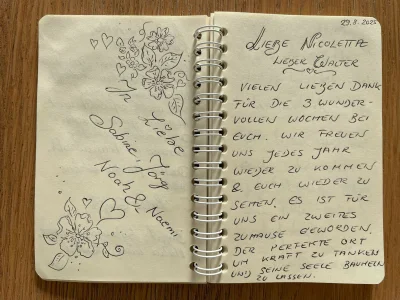 In Liebe
Sabine, Jörg
Noah & Naemi
29.8.2025
Liebe Nicoletta
Lieber Walter
Vielen lieben Dank
für die 3 wunder-
vollen Wochen bei
euch. Wir freuen
uns jedes Jahr
wieder zu kommen
& euch wieder zu
sehen. Es ist für
uns ein zweites
Zuhause geworden.
Der perfekte Ort
um Kraft zu tanken
und seine Seele baumeln
zu lassen.